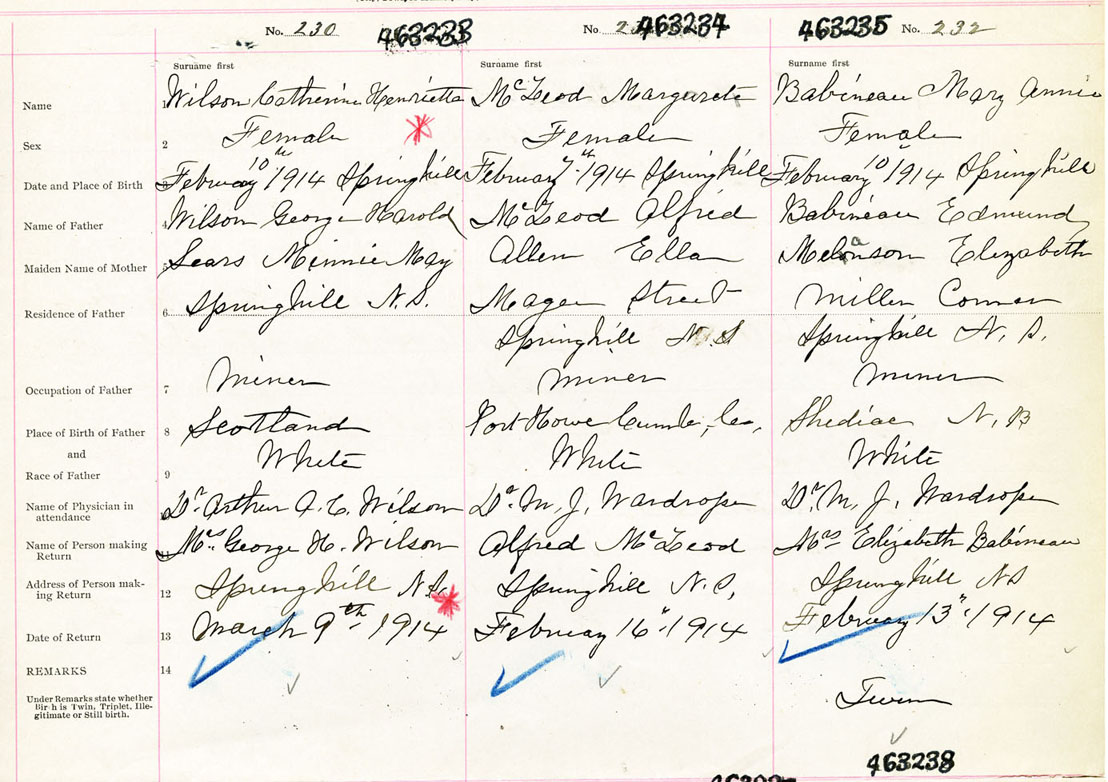 No. 230 463233
No 463234
463235 No. 232
Surname first
Surname first
Surname first
Name 1 Wilson Catherine Henrietta McLeod Margurete Babineau Mary Annie
Sex 2 Female Female Female
Date and Place of Birth 3 February 10th 1914 Springhill February 7th 1914 Springhill February 10" 1914 Springhill
Name of Father 4 Wilson George Harold McLeod Alfred Babineau Edmund
Maiden Name of Mother 5 Sears Minnie May Allen Ella Melanson Elizabeth
Residence of Father 6 Springhill N.S. Magee Street Miller Corner
Springhill N.S Springhill N.S.
Occupation of Father 7 Miner Miner Miner
Place of Birth of Father 8 Scotland Port Howe Cumb, Co, Shediac N.B
and
Race of Father 9 White White White
Name of Physician in attendance 10 Dr. Arthur A.C. Wilson Dr M, J, Wardrope Dr. M, J, Wardrope
Name of Person making Return 11 Mrs George H. Wilson Alfred McLeod Mrs Elizabeth Babineau
Address of Person mak-
ing Return 12 Springhill N.S. Springhill N.S, Springhill NS
Date of Return 13 March 9th 1914 February 16" 1914 February 13" 1914
REMARKS 14
Under Remarks state whether
Birth is Twin, Triplet, Ille-
gitimate or Still birth.
Twin
463238